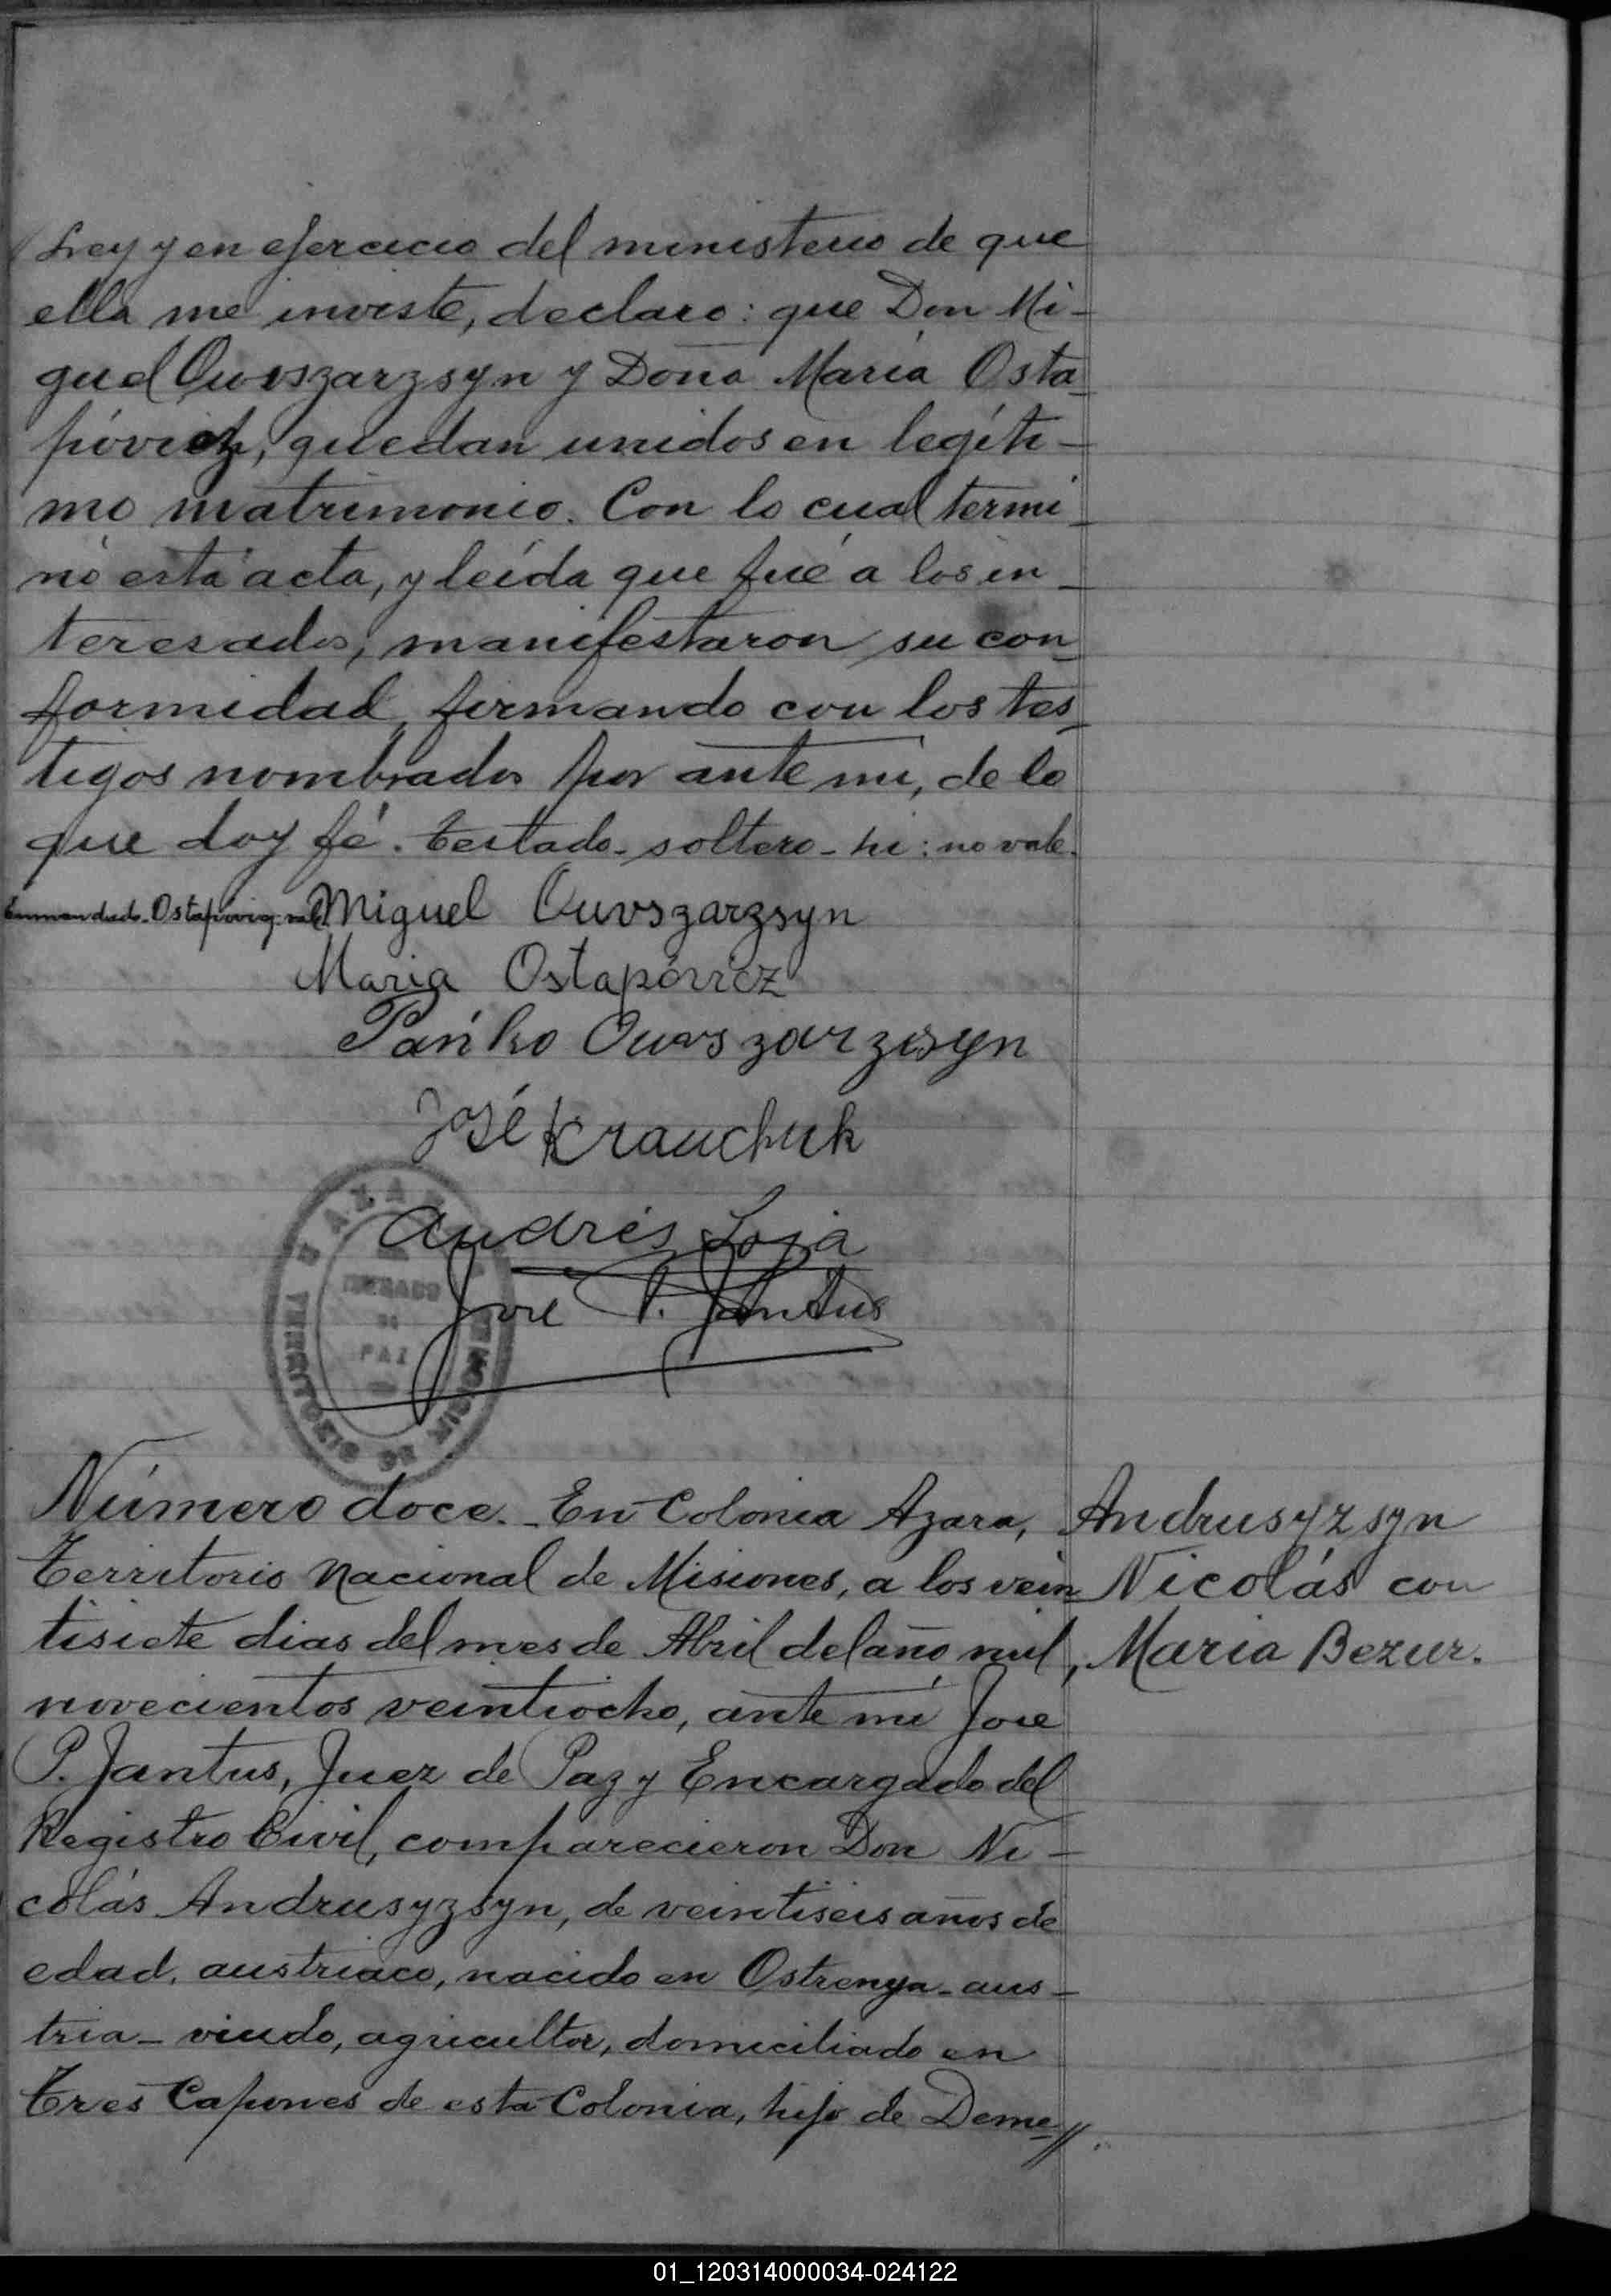 Ley y en ejercicio del ministerio de que
ella me inviste, declaro: que Don Mi-
guel Ouvszarzsyn y Doña María Osta-
póvicz, quedan unidos en legíti-
mo matrimonio. Con lo cual termi-
nó esta acta, y leída que fué a los in-
teresados, manifestaron su con-
formidad, firmando con los tes-
tigos nombrados por ante mi, de lo
que doy fé. Testado - soltero - hi: no vale.
Enmendado - Ostapóvicz: vale. Miguel Ouvszarzsyn
Maria Ostapóvicz
Pańko Ouvszarzsyn
José Krauchuk
Andrés Loja
José P. Jantus
JUZGADO
DE
PAZ
TERRITORIO DE MISIONES
Número doce. - En Colonia Azara,
Territorio Nacional de Misiones, a los vein-
tisiete dias del mes de Abril del año mil,
novecientos veintiocho, ante mí Jose
P. Jantus, Juez de Paz y Encargado del
Registro Civil, comparecieron Don Ni-
colás Andrusyzsyn, de veintiseis años de
edad, austriaco, nacido en Ostrenya - aus-
tria - viudo, agricultor, domiciliado en
Tres Capones de esta Colonia, hijo de Deme-//
Andrusyzsyn
Nicolás con
Maria Bezur.
01_120314000034-024122